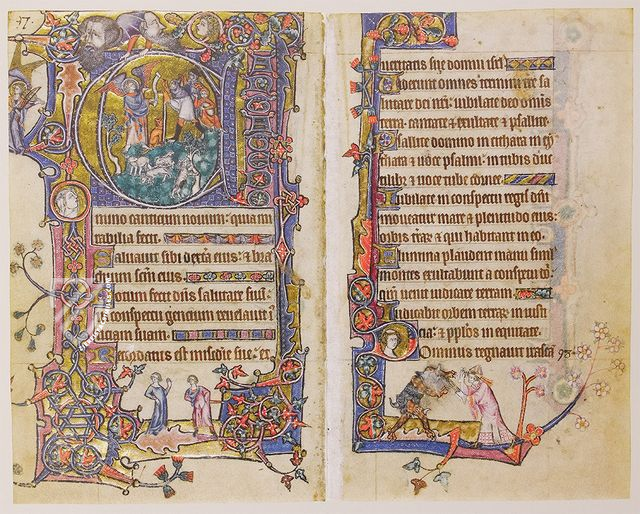 17.
mino canticum novum: quia mi
rabilia fecit.
Salvavit sibi dextera eius: & bra
chium scm eius.
Notum fecit dns salutare suum:
in conspectu gencium revelavit
suam.
Recordatus est misedie sue: et
Iocunde omnes termini terre sa
lutare dei nri: iubilate deo omis
terra: cantate & exultate & psallite.
Psallite domino in cithara in cy
thara & voce psalmi: in tubis duc
tilib: & voce tube cornee.
Iubilate in conspectu regis dni:
moveatur mare & plenitudo eius:
orbis trar: & qui habitant in eo.
Flumina plaudent manu simul
montes exultabunt a conspectu dni:
qm venit iudicare terram.
Iudicabit orbem terrar in iusti
cia: & pplos in equitate.
Dominus regnavit irascen 98.